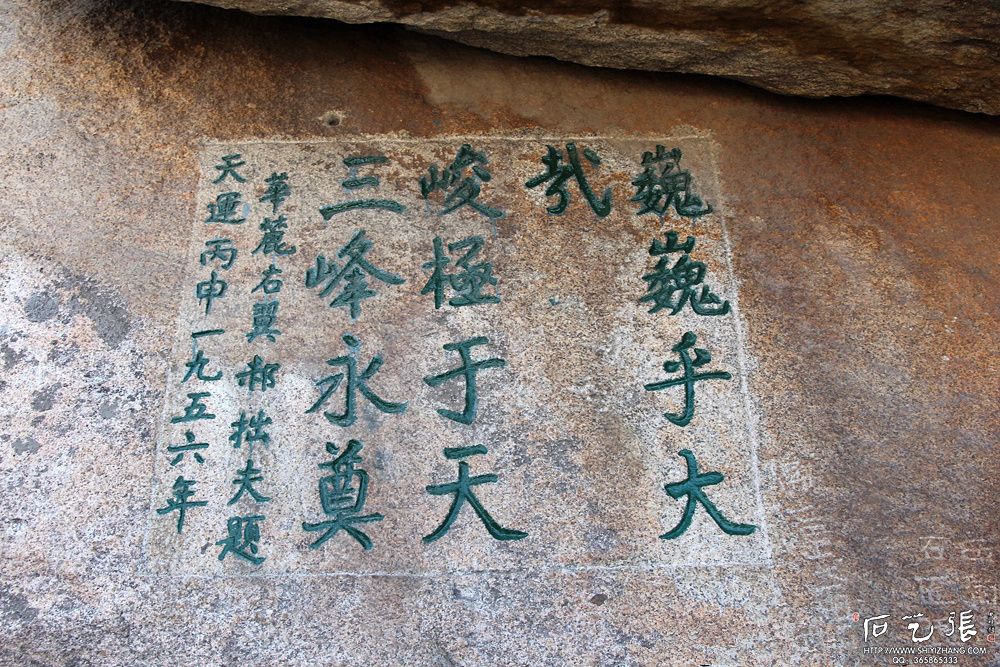 巍巍乎大
哉
峻極于天
三峰永奠
華麓右翼郝拙夫題
天運丙申一九五六年
石艺張
HTTP://WWW.SHIYIZHANG.COM
QQ: 365865333